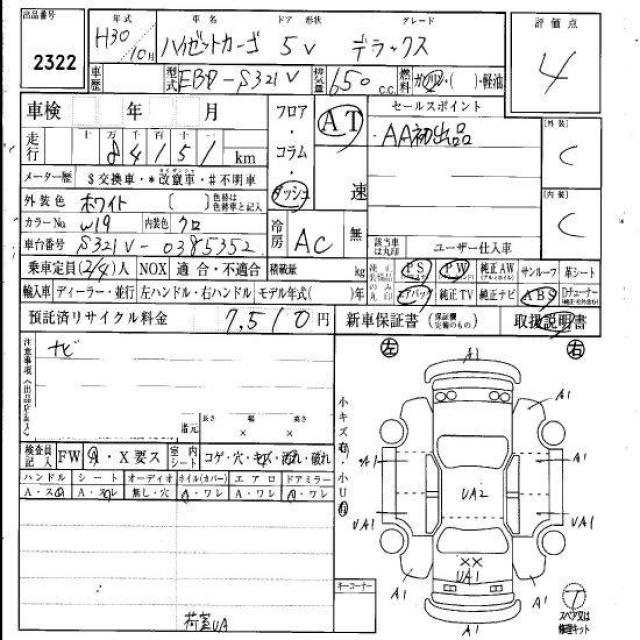 出品番号
2322
年式
H30
10月
車名
ハイゼットカーゴ
ドア 形状
5V
グレード
デラックス
評価点
4
車歴
型式
EBD-S321V
排気量
650 c.c.
燃料
ガソリン・( )・軽油
車検 年 月
走行
十 万 千 百 十 一
84151 km
メーター歴
$ 交換車・*改竄車・#不明車
外装色
ホワイト
( )
色替は色替車と記入
カラーNo
W19
内装色
クロ
車台番号
S321V-0385352
フロア・コラム・ダッシュ
AT
速
冷房
AC
無
セールスポイント
AA初出品
[外装]
C
[内装]
C
該当車は丸印
ユーザー仕入車
乗車定員(2/4)人
NOX
適合・不適合
積載量
kg
純正装備品のみ丸印
PS
PW
純正AW
サンルーフ
革シート
輸入車
ディーラー・並行
左ハンドル・右ハンドル
モデル年式( )年
エアバック
純正TV
純正ナビ
ABS
預託済リサイクル料金
7,510円
新車保証書
取扱説明書
注意事項(出品店記入)
ナビ
諸元
長さ 幅 高さ
× ×
検査員記入
FW
A・X要ス
室内シート
コゲ・穴・キズ・汚れ・破れ
ハンドル
シート
オーディオ
ホイル(カバー)
エアロ
ドアミラー
A・スレ
A・スレ
無し・穴
A・ワレ
A・ワレ
A・ワレ
荷室UA
キーコーナー
左
右
A1
A1
A1
A1
A1
UA2
UA1
UA1
XX
UA1
A1
A1
A1
T
スペア又は修理キット